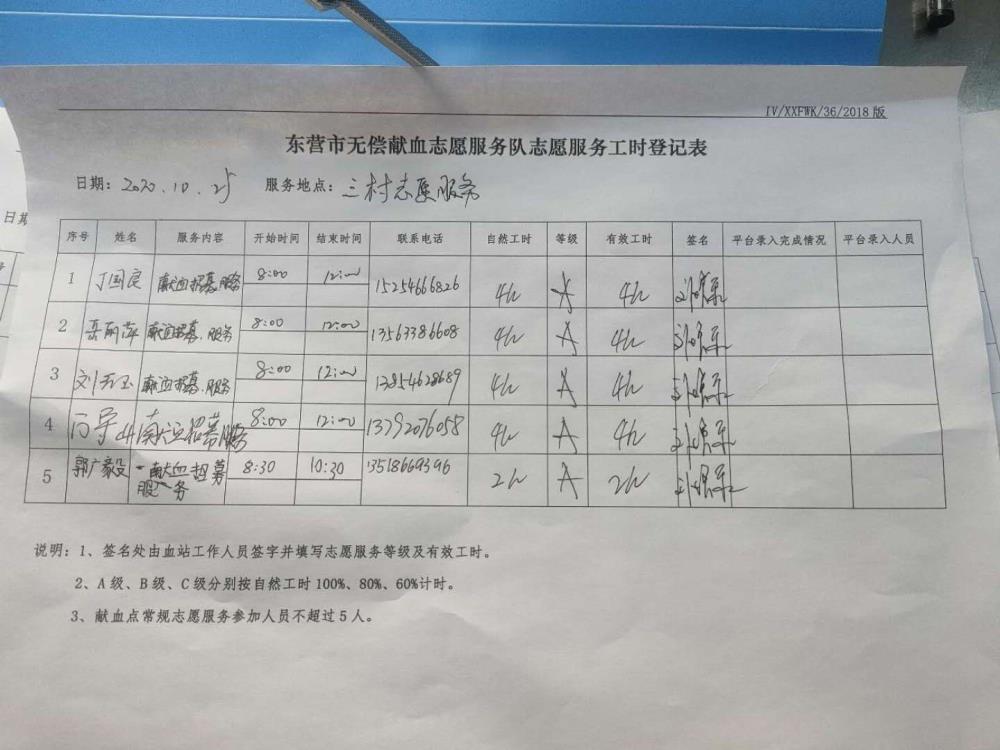 IV/XXFWK/36/2018版
东营市无偿献血志愿服务队志愿服务工时登记表
日期：2020.10.25 服务地点：三村志愿服务
日期
序号 姓名 服务内容 开始时间 结束时间 联系电话 自然工时 等级 有效工时 签名 平台录入完成情况 平台录入人员
1 丁国良 献血招募服务 8:00 12:00 15254666826 4h A 4h
2 丽萍 献血招募.服务 8:00 12:00 13563386608 4h A 4h
3 刘玉 献血招募.服务 8:00 12:00 13854628689 4h A 4h
4 献血招募服务 8:00 12:00 13792076058 4h A 4h
5 郭广毅 献血招募服务 8:30 10:30 13518669396 2h A 2h
说明：1、签名处由血站工作人员签字并填写志愿服务等级及有效工时。
2、A级、B级、C级分别按自然工时100%、80%、60%计时。
3、献血点常规志愿服务参加人员不超过5人。